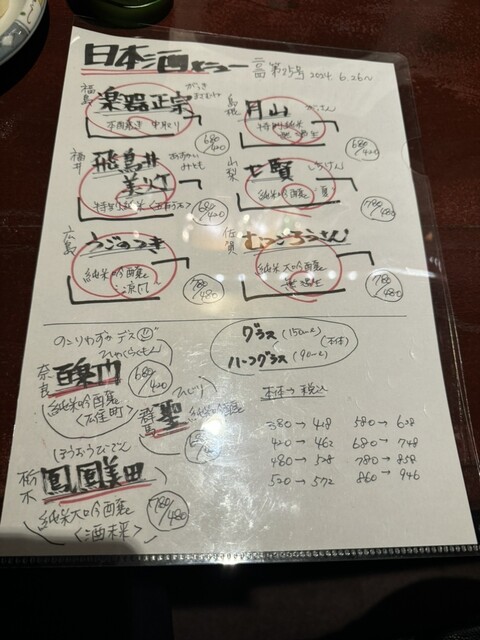 日本酒メニュー 第25号 2024 6.26~
福島 楽器正宗 がっき まさむね
本醸造 中取り 680/420
島根 月山 がっさん
特別純米 680/420
福井 飛鳥井 美灯 あすかい みとも
特別純米 〈五百万石〉 680/420
山梨 七賢 しちけん
純米吟醸 夏 780/480
広島 うごのつき
純米吟醸 涼風 780/480
佐賀 むつごろうさん
純米大吟醸 780/480
のこりわずかデス
奈良 百楽門 ひゃくらくもん 680/420
純米吟醸
群馬 聖 ひじり
純米吟醸 680/420
栃木 鳳凰美田 ほうおうびでん
純米大吟醸 〈酒未来〉 780/480
グラス (150ml)
ハーフグラス (90ml)
(本体)
本体→税込
380→418 580→638
420→462 680→748
480→528 780→858
520→572 860→946